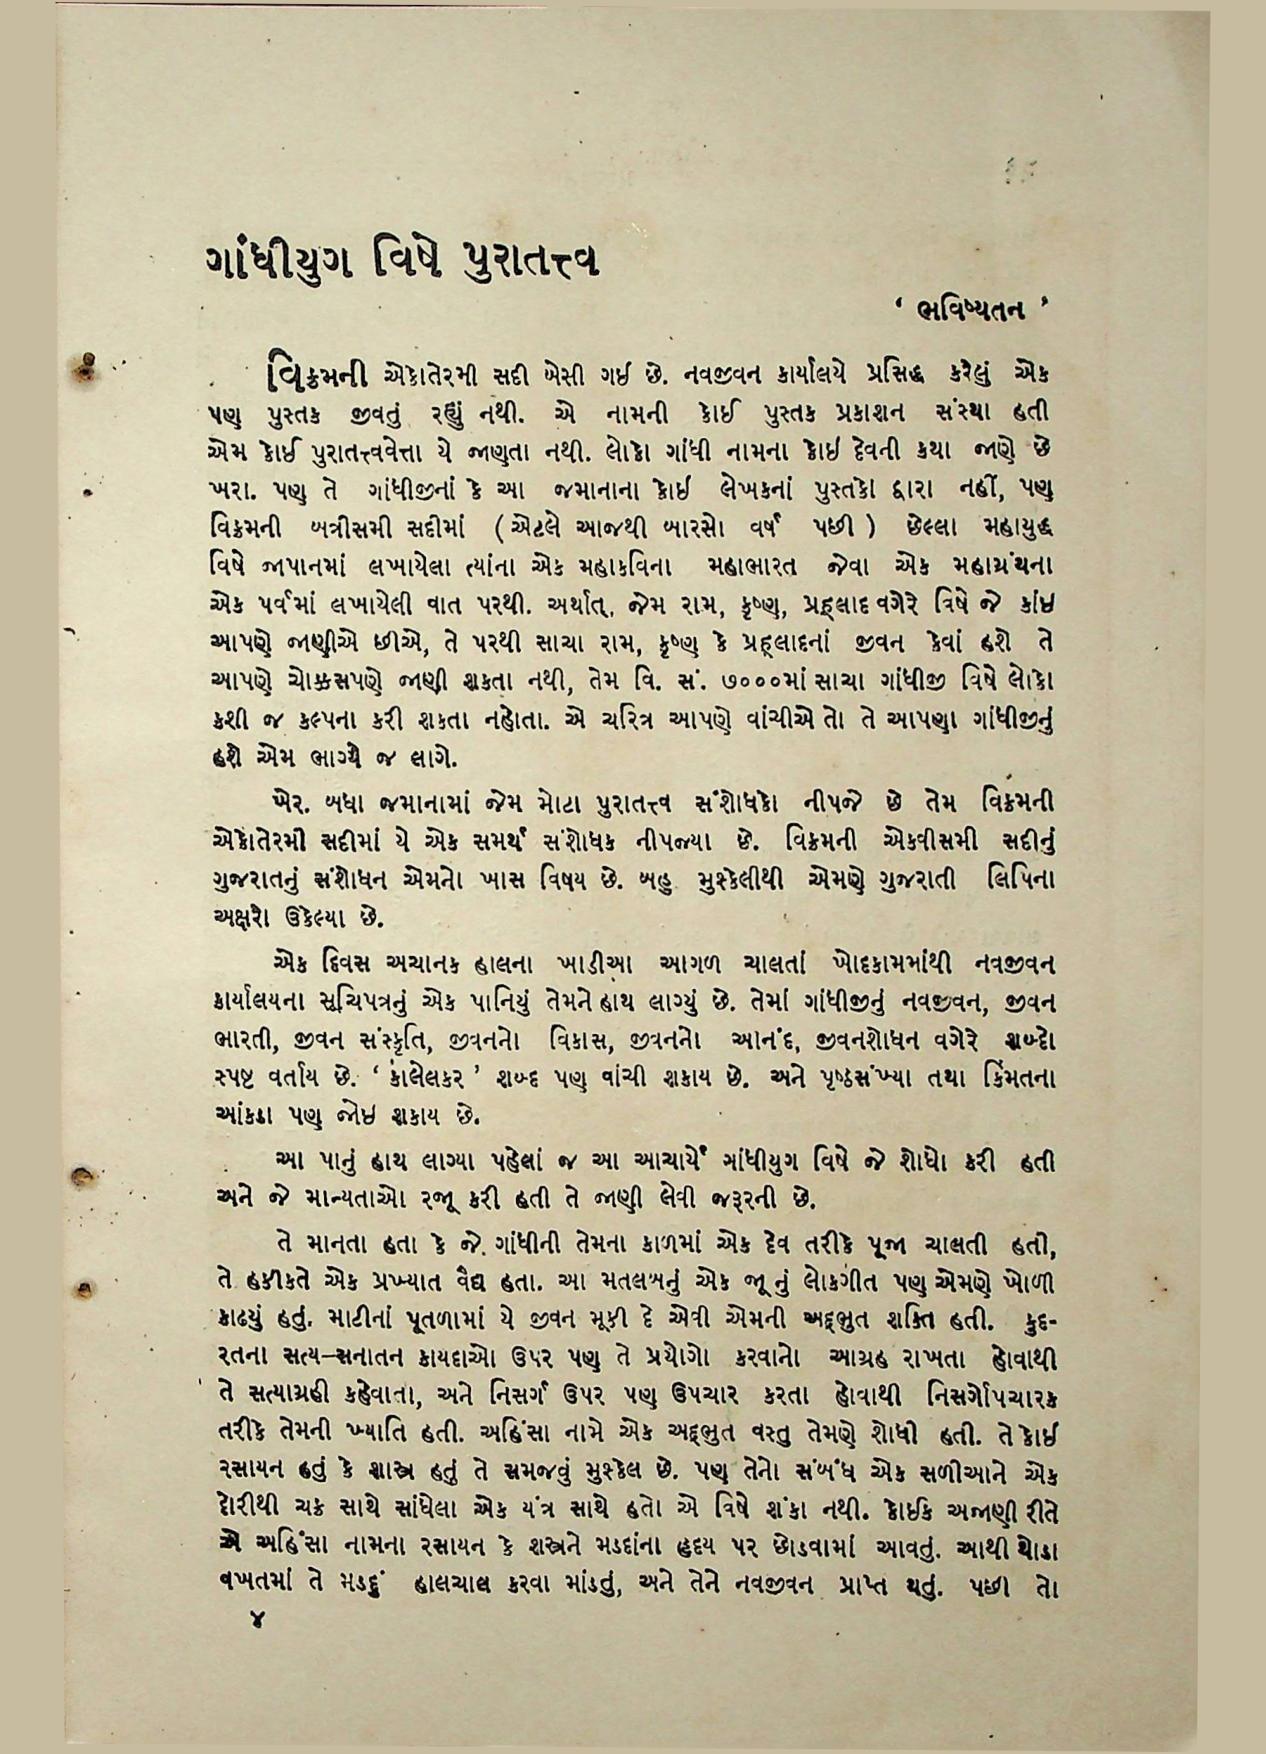 ગાંધીયુગ વિષે પુરાતત્ત્વ
‘ ભવિષ્યતન ’
વિક્રમની એકોતેરમી સદી બેસી ગઈ છે. નવજીવન કાર્યાલયે પ્રસિદ્ધ કરેલું એક
પણ પુસ્તક જીવતું રહ્યું નથી. એ નામની કોઈ પુસ્તક પ્રકાશન સંસ્થા હતી
એમ કોઈ પુરાતત્ત્વવેત્તા યે જાણતા નથી. લોકો ગાંધી નામના કોઈ દેવની કથા જાણે છે
ખરા. પણ તે ગાંધીજીનાં કે આ જમાનાના કોઈ લેખકનાં પુસ્તકો દ્વારા નહીં, પણ
વિક્રમની બત્રીસમી સદીમાં ( એટલે આજથી બારસો વર્ષ પછી ) છેલ્લા મહાયુદ્ધ
વિષે જાપાનમાં લખાયેલા ત્યાંના એક મહાકવિના મહાભારત જેવા એક મહાગ્રંથના
એક પર્વમાં લખાયેલી વાત પરથી. અર્થાત્, જેમ રામ, કૃષ્ણ, પ્રહ્લાદ વગેરે વિષે જે કાંઈ
આપણે જાણીએ છીએ, તે પરથી સાચા રામ, કૃષ્ણ કે પ્રહ્લાદનાં જીવન કેવાં હશે તે
આપણે ચોક્કસપણે જાણી શકતા નથી, તેમ વિ. સં. ૭૦૦૦માં સાચા ગાંધીજી વિષે લોકો
કશી જ કલ્પના કરી શકતા નહોતા. એ ચરિત્ર આપણે વાંચીએ તો તે આપણા ગાંધીજીનું
હશે એમ ભાગ્યે જ લાગે.
ખેર. બધા જમાનામાં જેમ મોટા પુરાતત્ત્વ સંશોધકો નીપજે છે તેમ વિક્રમની
એકોતેરમી સદીમાં યે એક સમર્થ સંશોધક નીપજ્યા છે. વિક્રમની એકવીસમી સદીનું
ગુજરાતનું સંશોધન એમનો ખાસ વિષય છે. બહુ મુશ્કેલીથી એમણે ગુજરાતી લિપિના
અક્ષરો ઉકેલ્યા છે.
એક દિવસ અચાનક હાલના ખાડીઆ આગળ ચાલતાં ખોદકામમાંથી નવજીવન
કાર્યાલયના સૂચિપત્રનું એક પાનિયું તેમને હાથ લાગ્યું છે. તેમાં ગાંધીજીનું નવજીવન, જીવન
ભારતી, જીવન સંસ્કૃતિ, જીવનનો વિકાસ, જીવનનો આનંદ, જીવનશોધન વગેરે શબ્દો
સ્પષ્ટ વર્તાય છે. ‘ કાલેલકર ’ શબ્દ પણ વાંચી શકાય છે. અને પૃષ્ઠસંખ્યા તથા કિંમતના
આંકડા પણ જોઈ શકાય છે.
આ પાનું હાથ લાગ્યા પહેલાં જ આ આચાર્યે ગાંધીયુગ વિષે જે શોધો કરી હતી
અને જે માન્યતાઓ રજૂ કરી હતી તે જાણી લેવી જરૂરની છે.
તે માનતા હતા કે જે ગાંધીની તેમના કાળમાં એક દેવ તરીકે પૂજા ચાલતી હતી,
તે હકીકતે એક પ્રખ્યાત વૈદ્ય હતા. આ મતલબનું એક જૂનું લોકગીત પણ એમણે ખોળી
કાઢ્યું હતું. માટીનાં પૂતળામાં યે જીવન મૂકી દે એવી એમની અદ્ભુત શક્તિ હતી. કુદ-
રતના સત્ય–સનાતન કાયદાઓ ઉપર પણ તે પ્રયોગો કરવાનો આગ્રહ રાખતા હોવાથી
તે સત્યાગ્રહી કહેવાતા, અને નિસર્ગ ઉપર પણ ઉપચાર કરતા હોવાથી નિસર્ગોપચારક
તરીકે તેમની ખ્યાતિ હતી. અહિંસા નામે એક અદ્ભુત વસ્તુ તેમણે શોધી હતી. તે કોઈ
રસાયન હતું કે શાસ્ત્ર હતું તે સમજવું મુશ્કેલ છે. પણ તેનો સંબંધ એક સળીઆને એક
દોરીથી ચક્ર સાથે સાંધેલા એક યંત્ર સાથે હતો એ વિષે શંકા નથી. કોઈક અજાણી રીતે
એ અહિંસા નામના રસાયન કે શસ્ત્રને મડદાંના હૃદય પર છોડવામાં આવતું. આથી થોડા
વખતમાં તે મડદું હાલચાલ કરવા માંડતું, અને તેને નવજીવન પ્રાપ્ત થતું. પછી તો
૪